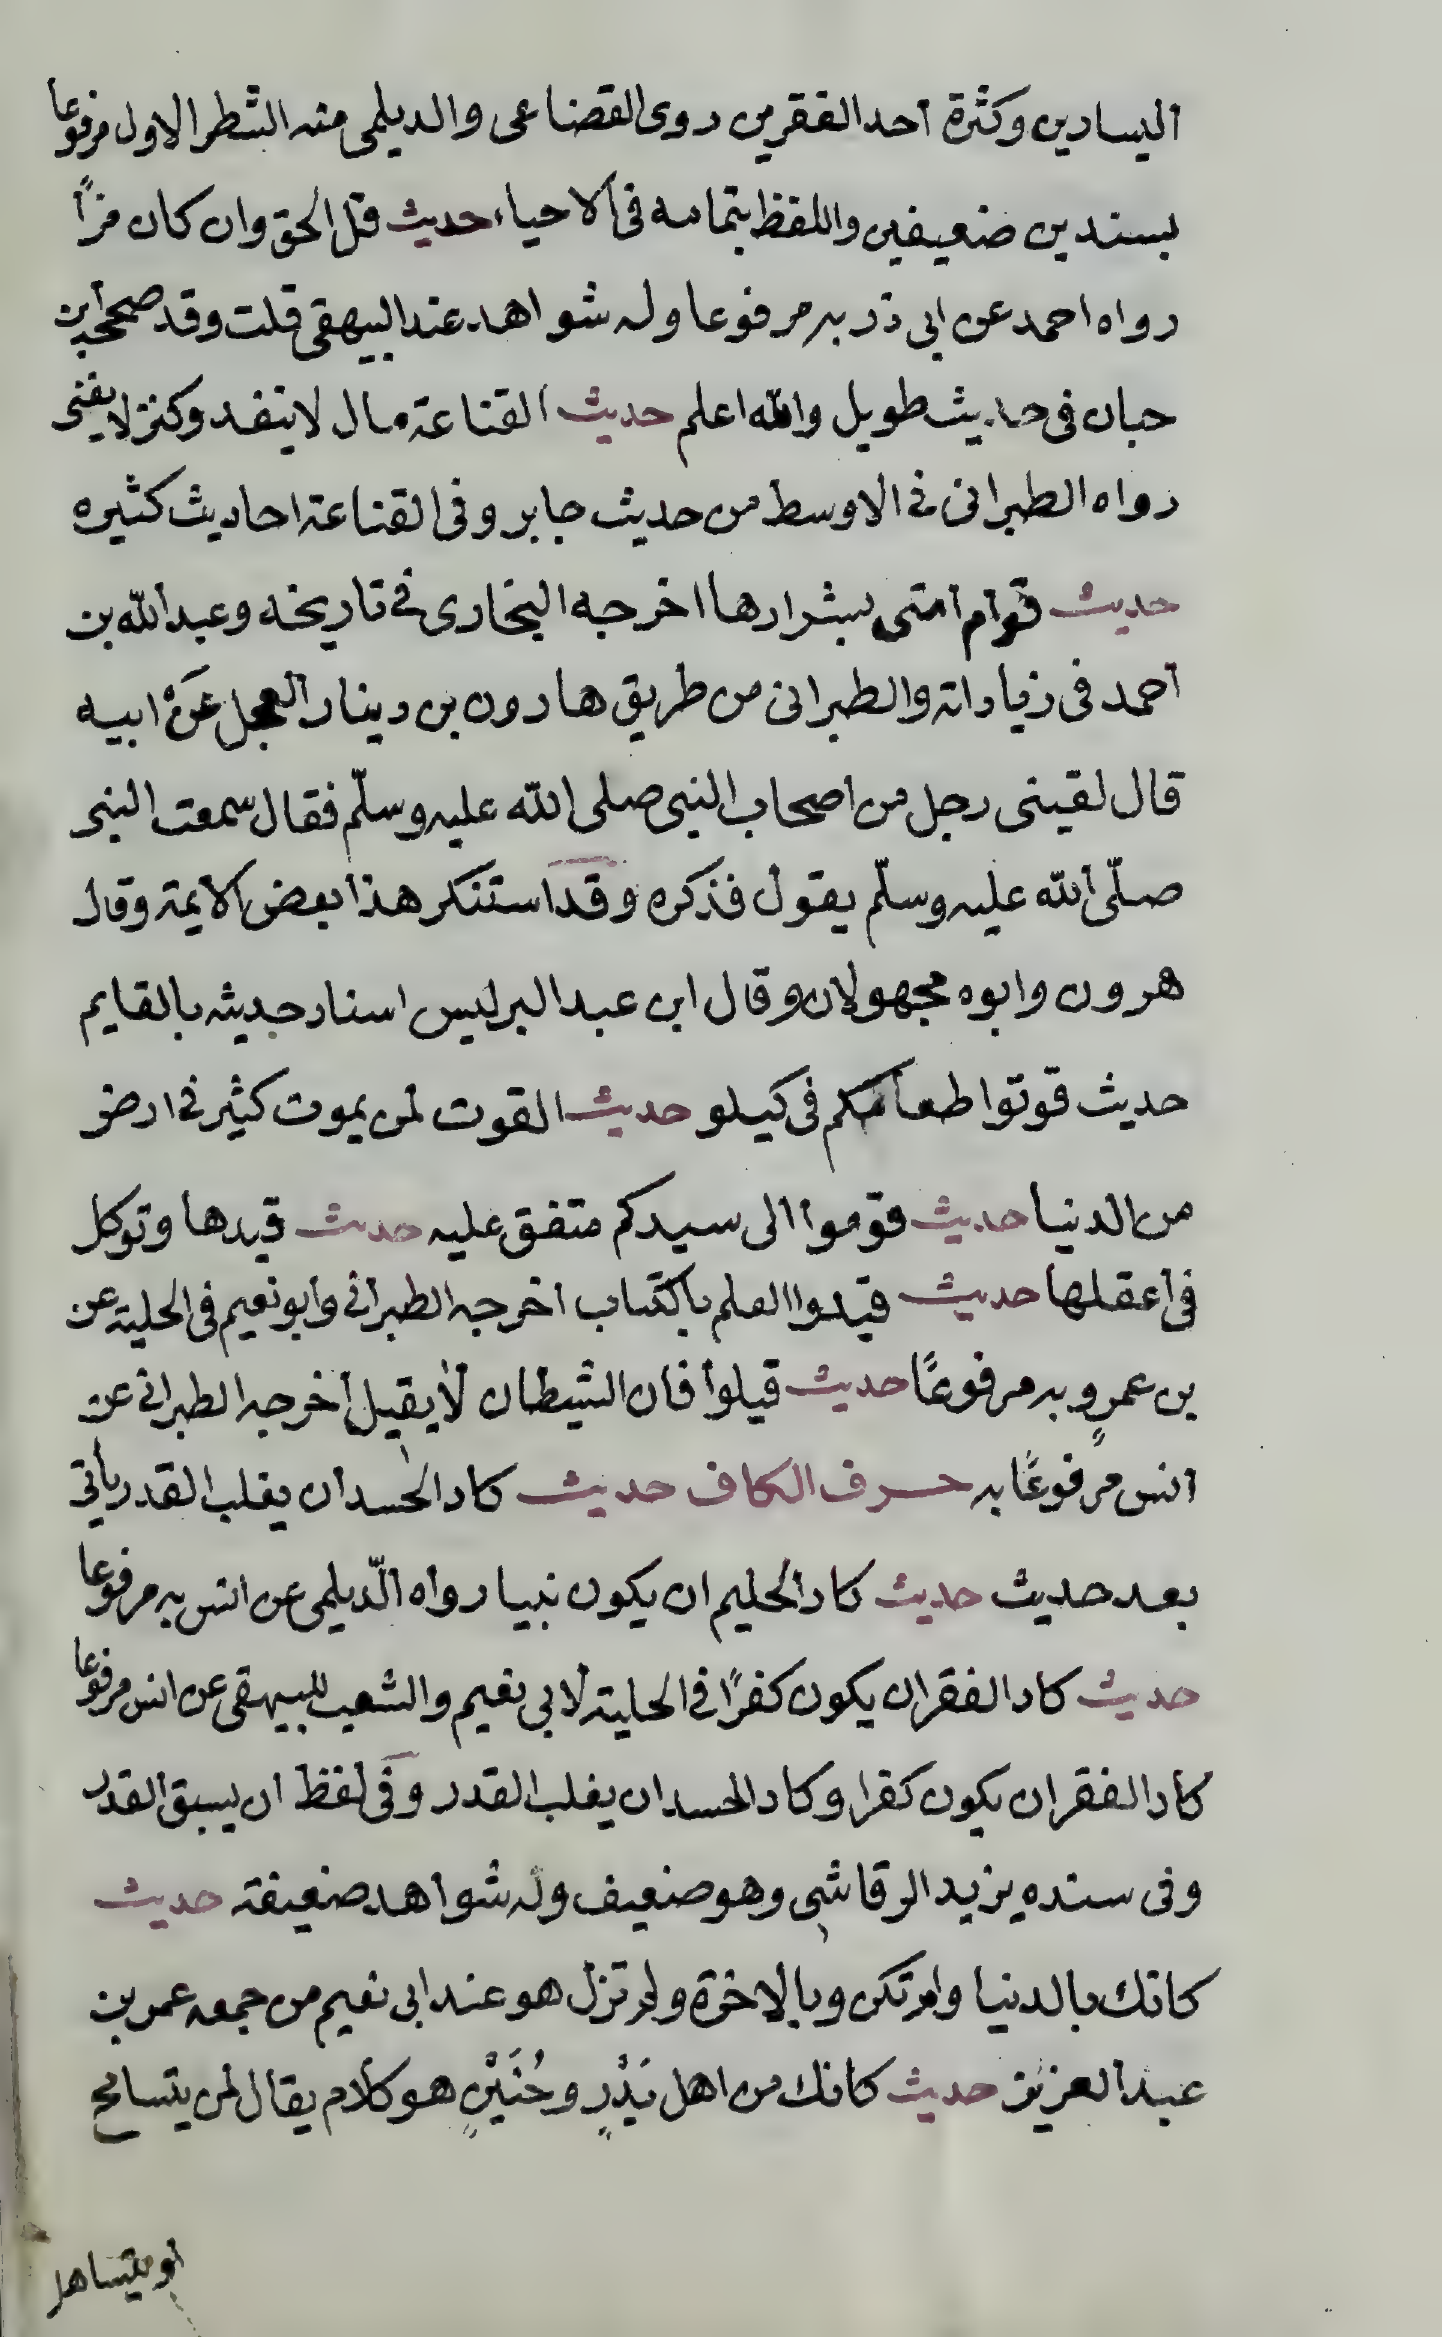 اليسارين وكثرة احد الفقرين روى القضاعى والديلمى منه الشطر الاول مرفوعا
بسندين ضعيفين واللفظ بتمامه فى الاحياء حديث قل الحق وان كان مرًا
رواه احمد عن ابى ذر به مرفوعا وله شواهد عند البيهقى قلت وقد صححه ابن
حبان فى حديث طويل والله اعلم حديث القناعة مال لا ينفد وكنز لا يفنى
رواه الطبرانى فى الاوسط من حديث جابر وفى القناعة احاديث كثيره
حديث قوام امتى بشرارها اخرجه البخارى فى تاريخه وعبد الله بن
احمد فى زياداته والطبرانى من طريق هارون بن دينار العجل عَنْ ابيه
قال لقينى رجل من اصحاب النبى صلى الله عليه وسلّم فقال سمعت النبى
صلّى الله عليه وسلّم يقول فذكره وقد استنكر هذا بعض الايمة وقال
هرون وابوه مجهولان وقال ابن عبد البر ليس اسناد حديثه بالقايم
حديث قوتوا طعامكم فى كيلو حديث القوت لمن يموت كثير فى ارض
من الدنيا حديث قوموا الى سيدكم متفق عليه حديث قيدها وتوكل
فى اعقلها حديث قيدوا العلم بالكتاب اخرجه الطبرانى وابو نعيم فى الحلية عن
بن عمرٍو به مرفوعًا حديث قيلوا فان الشيطان لا يقيل اخرجه الطبرانى عن
انس مرفوعًا به حرف الكاف حديث كاد الحسد ان يغلب القدر ياتى
بعد حديث حديث كاد الحليم ان يكون نبيا رواه الدّيلمى عن انس به مرفوعا
حديث كاد الفقر ان يكون كفرًا فى الحلية لابى نعيم والشعب للبيهقى عن انس مرفوعا
كاد الفقر ان يكون كفرا وكاد الحسد ان يغلب القدر وفى لفظ ان يسبق القدر
وفى سنده يزيد الرقاشى وهو ضعيف وله شواهد ضعيفة حديث
كانك بالدنيا ولم تكن وبالاخرة ولم تزل هو عند ابى نعيم من جمعه عمر بن
عبد العزيز حديث كانك من اهل بَدْرٍ وحُنَيْنٍ هو كلام يقال لمن يتسامح
او يتساهل